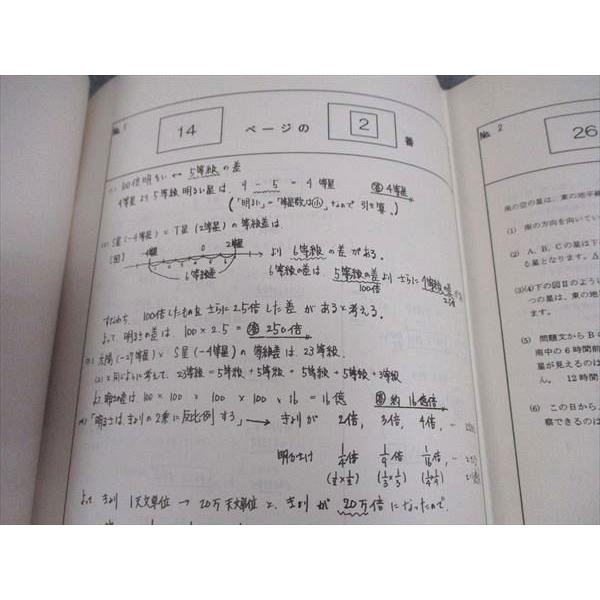 No. 1
14 ページの 2 番
(1) 100倍明るい ↔ 5等級の差
9等星より5等級明るい星は、9 - 5 = 4 等星 答 4等星
(「明るい」=「等星数は小」なので 引き算)
(2) S星(-4等星)とT星(2等星)の等級差は、
(図) -4等星 0 2等星
6等級差
より 6等級の差がある。
6等級の差は、5等級の差よりさらに1等級の差
100倍 2.5倍
すなわち 100倍したものをさらに2.5倍した差があると考える。
よって 明るさの差は、100 × 2.5 = 答 250倍
(3) 太陽(-27等星)とS星(-4等星)の等級差は、23等級。
(2)と同じように考えて、23等級 = 5等級 + 5等級 + 5等級 + 5等級 + 3等級
よって明るさの差は 100 × 100 × 100 × 100 × 16 = 16億 答 約16億倍
(4)「明るさは、きょりの2乗に反比例する」 → きょりが 2倍, 3倍, 4倍, …
明るさは 1/4倍 1/9倍 1/16倍, …
(1/2×1/2) (1/3×1/3) (1/4×1/4)
よって きょり 1天文単位 → 20万天文単位と、きょりが 20万倍になったので
No. 2
26
南の空の星は、東の地平
(1) 南の方向を向いてい
(2) A、B、Cの星は下
る星となります。△
(3)(4)下の図Ⅱのよう
つの星は、東の地
ます。
(5) 問題文からB
南中の6時間前
星が見えるのは
ん。 12時間
(6) この日から、
察できるのは